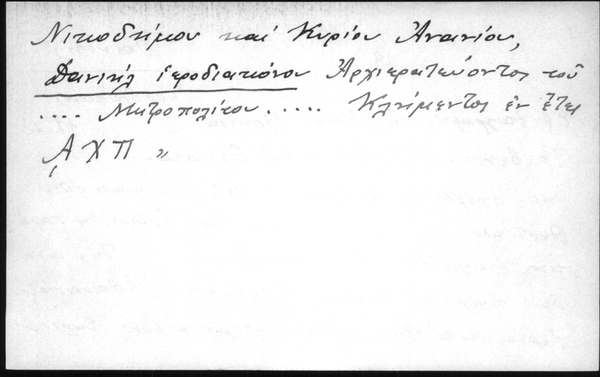 Νικοδήμου καί Κυρίου Ἀνανίου,
Δανιήλ ἱεροδιακόνου Ἀρχιερατεύοντος τοῦ
.... Μητροπολίτου ..... Κλήμεντος ἐν ἔτει
͵ΑΧΠ "